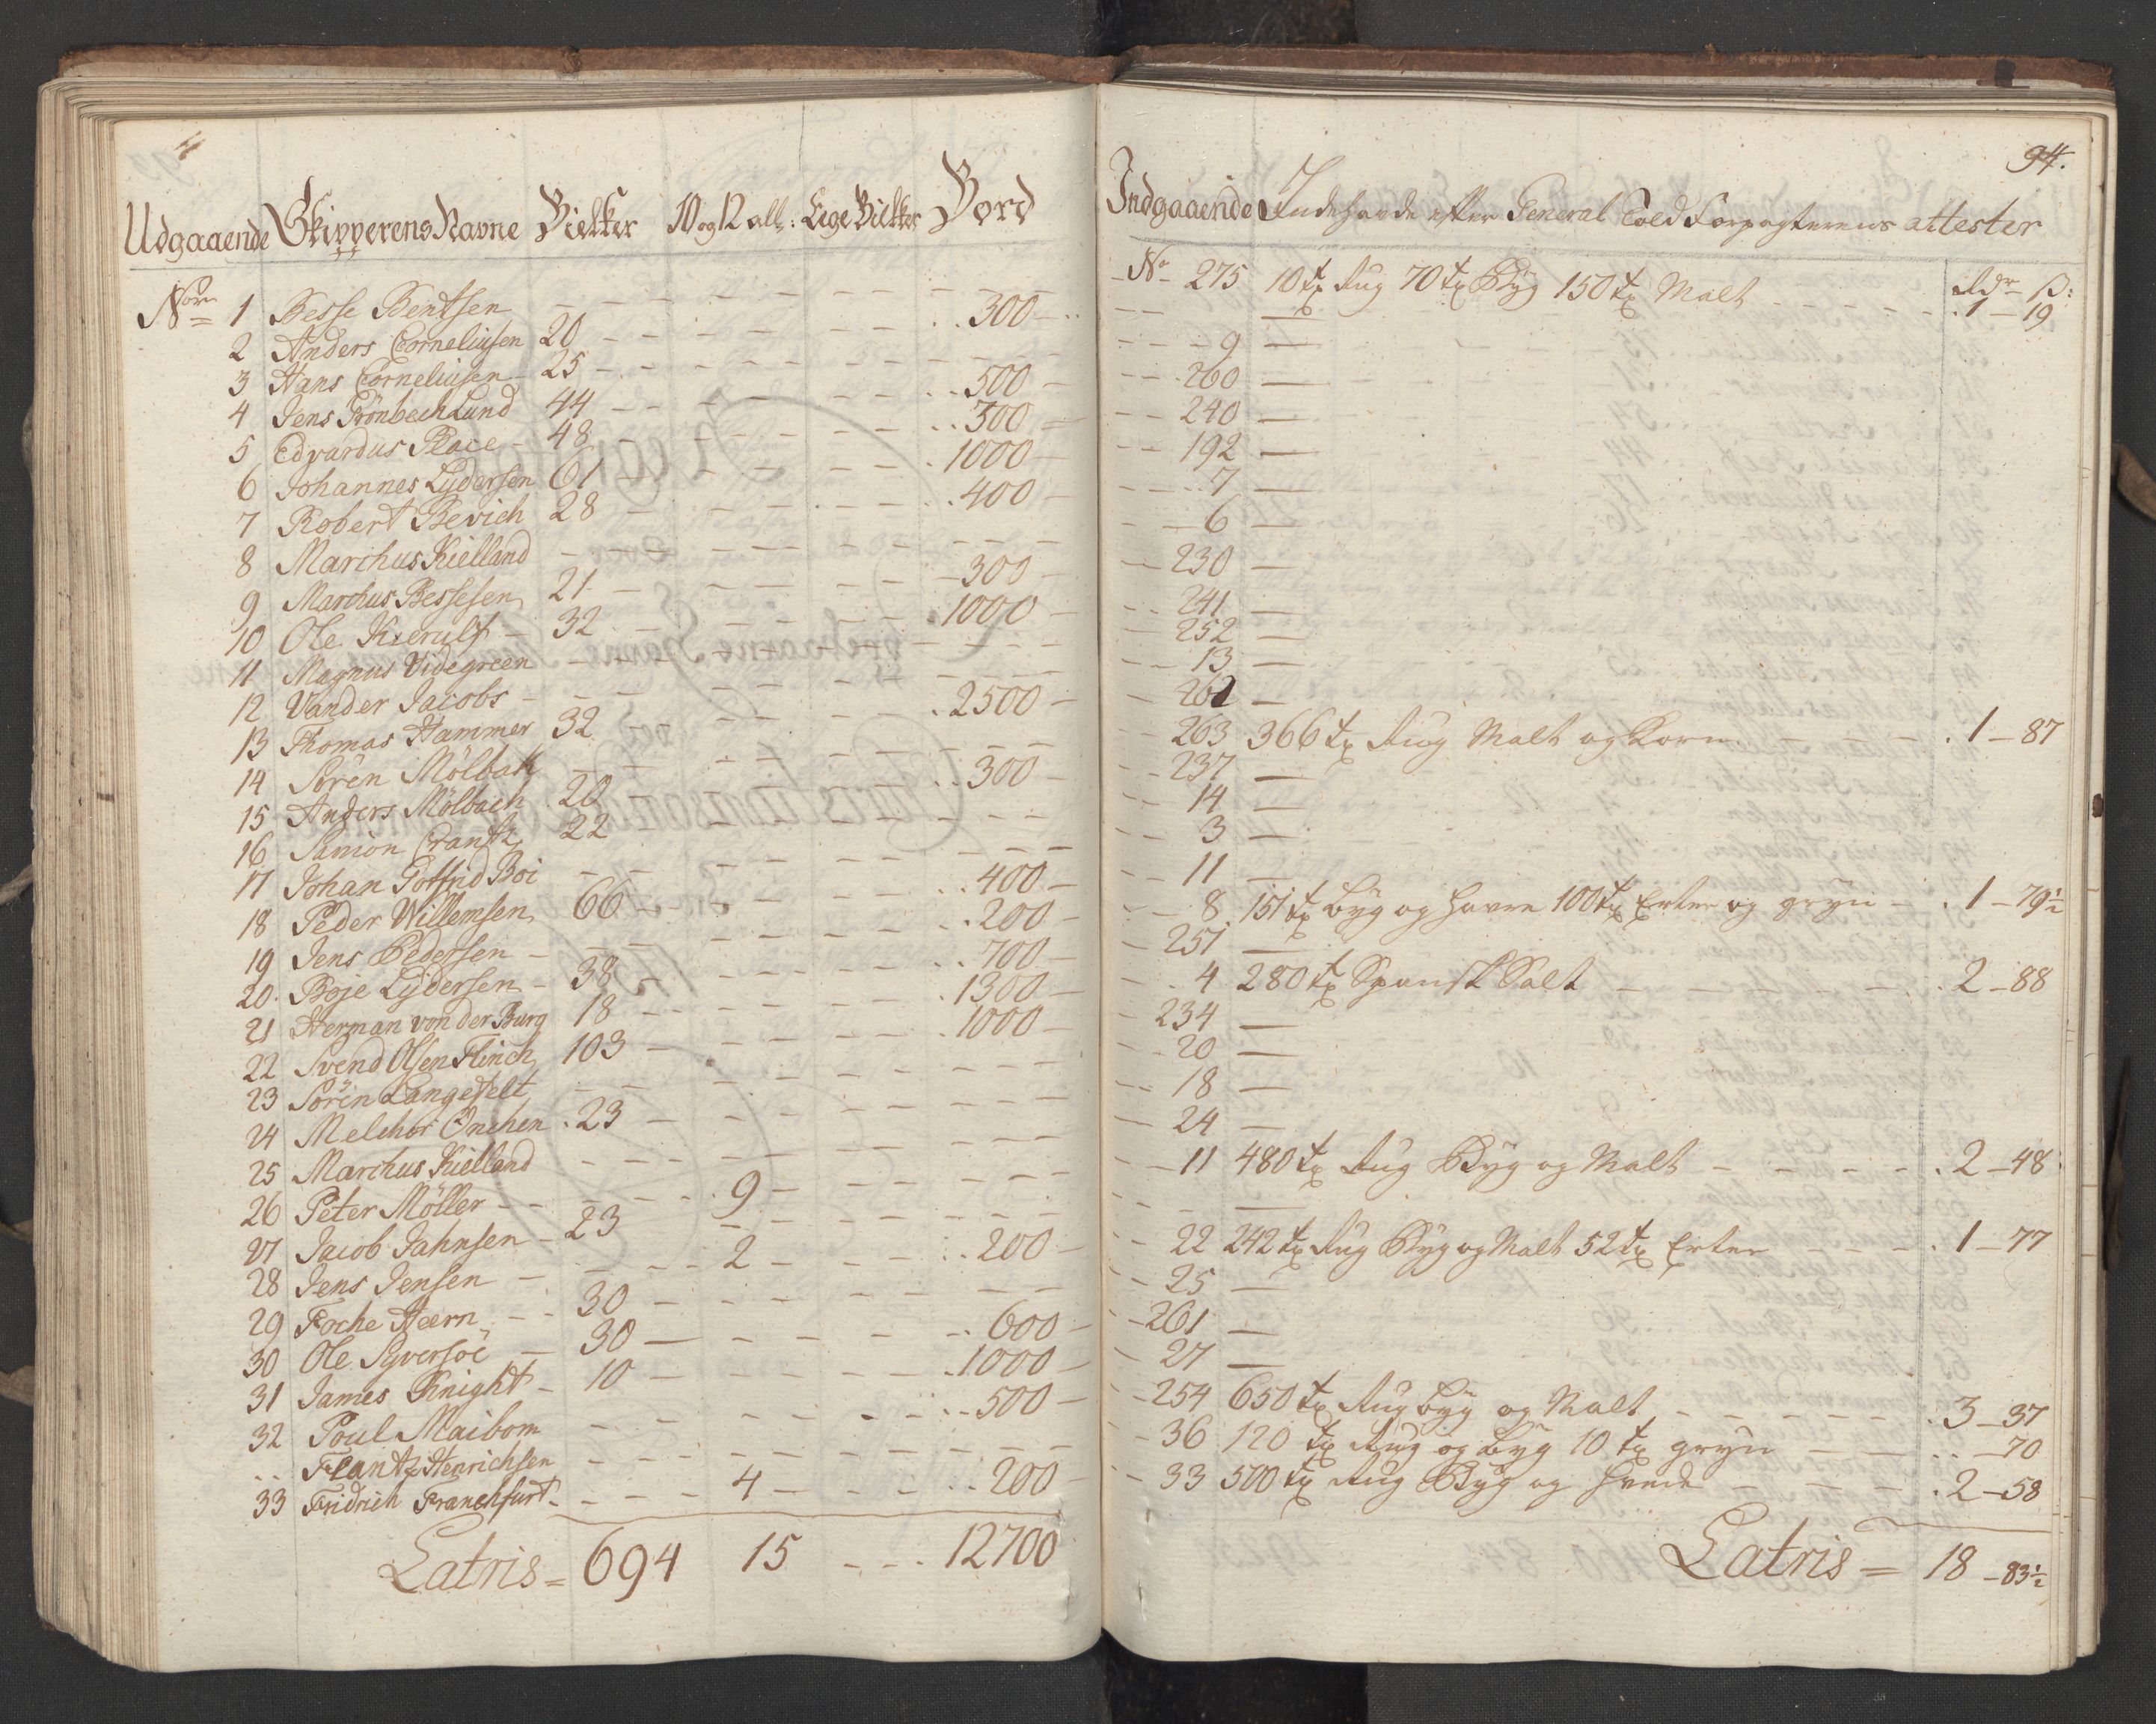 4
Udgaaende Skipperens Navne Bielker 10 og 12 all: Ege Bielker Bord
No 1 Besse Bentsen - - - 300
2 Anders Corneliusen 20 - - -
3 Hans Corneliusen 25 - - - 500
4 Jens Grönbech Lund 44 - - - 300
5 Edvardus Place 48 - - - 1000
6 Johannes Lydersen 61 - - - 400
7 Robert Bevich 28 - - -
8 Marchus Kielland - - - 300
9 Marchus Bessesen 21 - - - 1000
10 Ole Kierulf 32 - - -
11 Magnus Videgreen - - -
12 Vander Jacobs - - - 2500
13 Thomas Hammer 32 - - -
14 Sören Mölbak - - - 300
15 Anders Mölbach 20 - - -
16 Samon Crantz 22 - - -
17 Johan Gotfrid Boi - - - 400
18 Peder Willemsen 66 - - - 200
19 Jens Pedersen - - - 700
20 Boje Lydersen 38 - - - 1300
21 Herman von der Burg 18 - - - 1000
22 Svend Olsen Flinch 103 - - -
23 Sören Langefelt - - -
24 Melchor Onchen 23 - - -
25 Marchus Kielland - - -
26 Peter Möller - - 9 - - -
27 Jacob Jahnsen 23 - - - 200
28 Jens Jensen - - 2 - - -
29 Foche Heern 30 - - - 600
30 Ole Syversöe 30 - - - 1000
31 James Knight 10 - - - 500
32 Poul Maibom - - -
.. Frantz Henrichsen - - -
33 Fridrich Franchfurt - - 4 - - 200
Latris = 694 15 - - - 12700
94.
Indgaaende Indehavde efter General Told Forpagterens attester
No 275 10 tr Rug 70 tr Byg 150 tr Malt Rdr ß: 1 - 19
- - -
9 -
260 -
240 -
192 -
7 -
6 -
230 -
241 -
252 -
13 -
262 -
263 366 tr Rug Malt og Korn - - - 1 - 87
237 -
14 -
3 -
11 -
8 151 tr Byg og Havre 100 tr Erter og gryn - 1 - 79½
251 -
4 280 tr Spansk Salt - - - 2 - 88
234 -
20 -
18 -
24 -
11 480 tr Rug Byg og Malt - - - 2 - 48
- - -
22 242 tr Rug Byg og Malt 52 tr Erter - - - 1 - 77
25 -
261 -
27 -
254 650 tr Rug Byg og Malt - - - 3 - 37
36 120 tr Rug og Byg 10 tr gryn - - - 70
33 500 tr Rug Byg og Hvede - - - 2 - 58
Latris = 18 - 83½